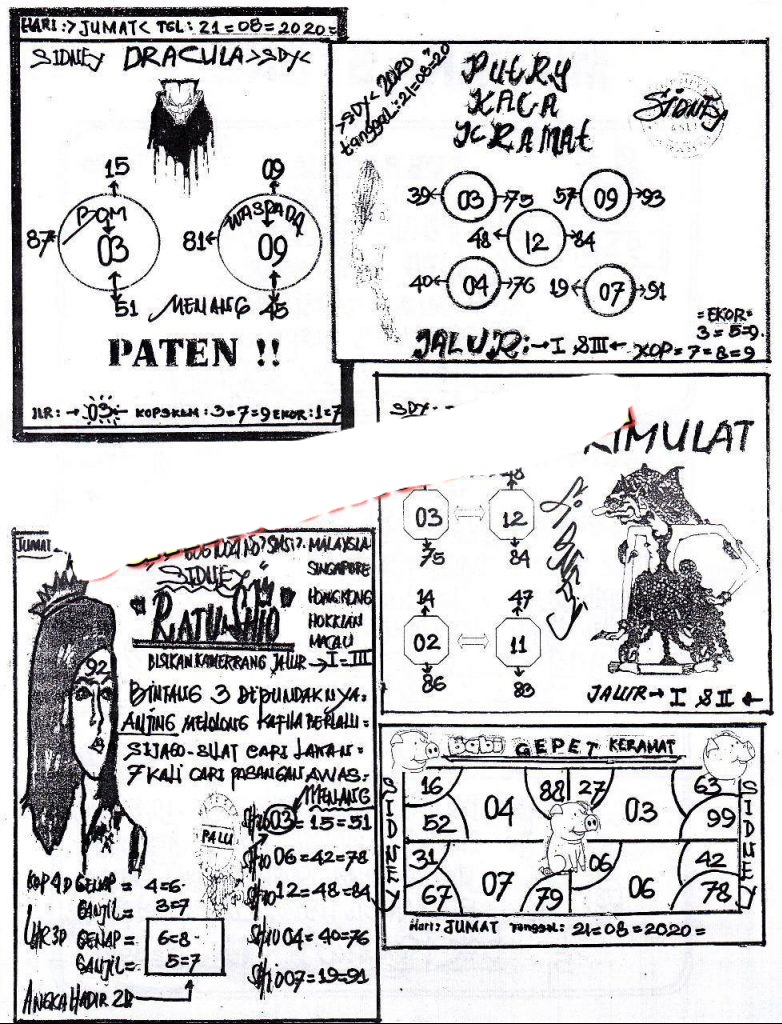 HARI:> JUMAT< TGL: 21=08=2020=
SIDNEY DRACULA >SDY<
15
09
BOM
WASPADA
87
03
81
09
51 MENANG 45
PATEN !!
JLR: → 03 ← KOP3KLM: 3=7=9 EKOR: 1=7
>SDY< 2DRD
tanggal: 21=08=20
PUTRY
KACA
KRAMAT
SIDNEY
39 03 75
57 09 93
48 12 84
40 04 76
19 07 91
=EKOR=
3=5=9.
JALUR: → I & III ← KOP=7=8=9
SDY--
RIMULAT
48
03 12
75 84
14 47
02 11
86 83
JALUR → I & II ←
JUMAT
MALAYSIA
SIDNEY
SINGAPORE
"RATU SHIO"
HONGKONG
HOKKIAN
MACAU
BISIKAN KAMERRANG JALUR → I = III
92
BINTANG 3 DEPUNDAKNYA=
ANJING MELOLONG KETIKA BERLALU=
SIJAGO-SILAT CARI LAWAN=
7 KALI CARI PASANGAN AWAS=
MENANG
PALU
SHIO 03 = 15=51
SHIO 06=42=78
SHIO 12=48=84
SHIO 04=40=76
SHIO 07=19=91
KOP 4D GENAP = 4=6
GANJIL = 3=7
GENAP = 6=8
GANJIL = 5=7
ANGKA HADIR 2D
Babi GEPET KERAMAT
SIDNEY
16 04 88 27 03 63
52 99
31 06 42
67 07 79 06 78
SIDNEY
Hari: JUMAT Tanggal: 21=08=2020=